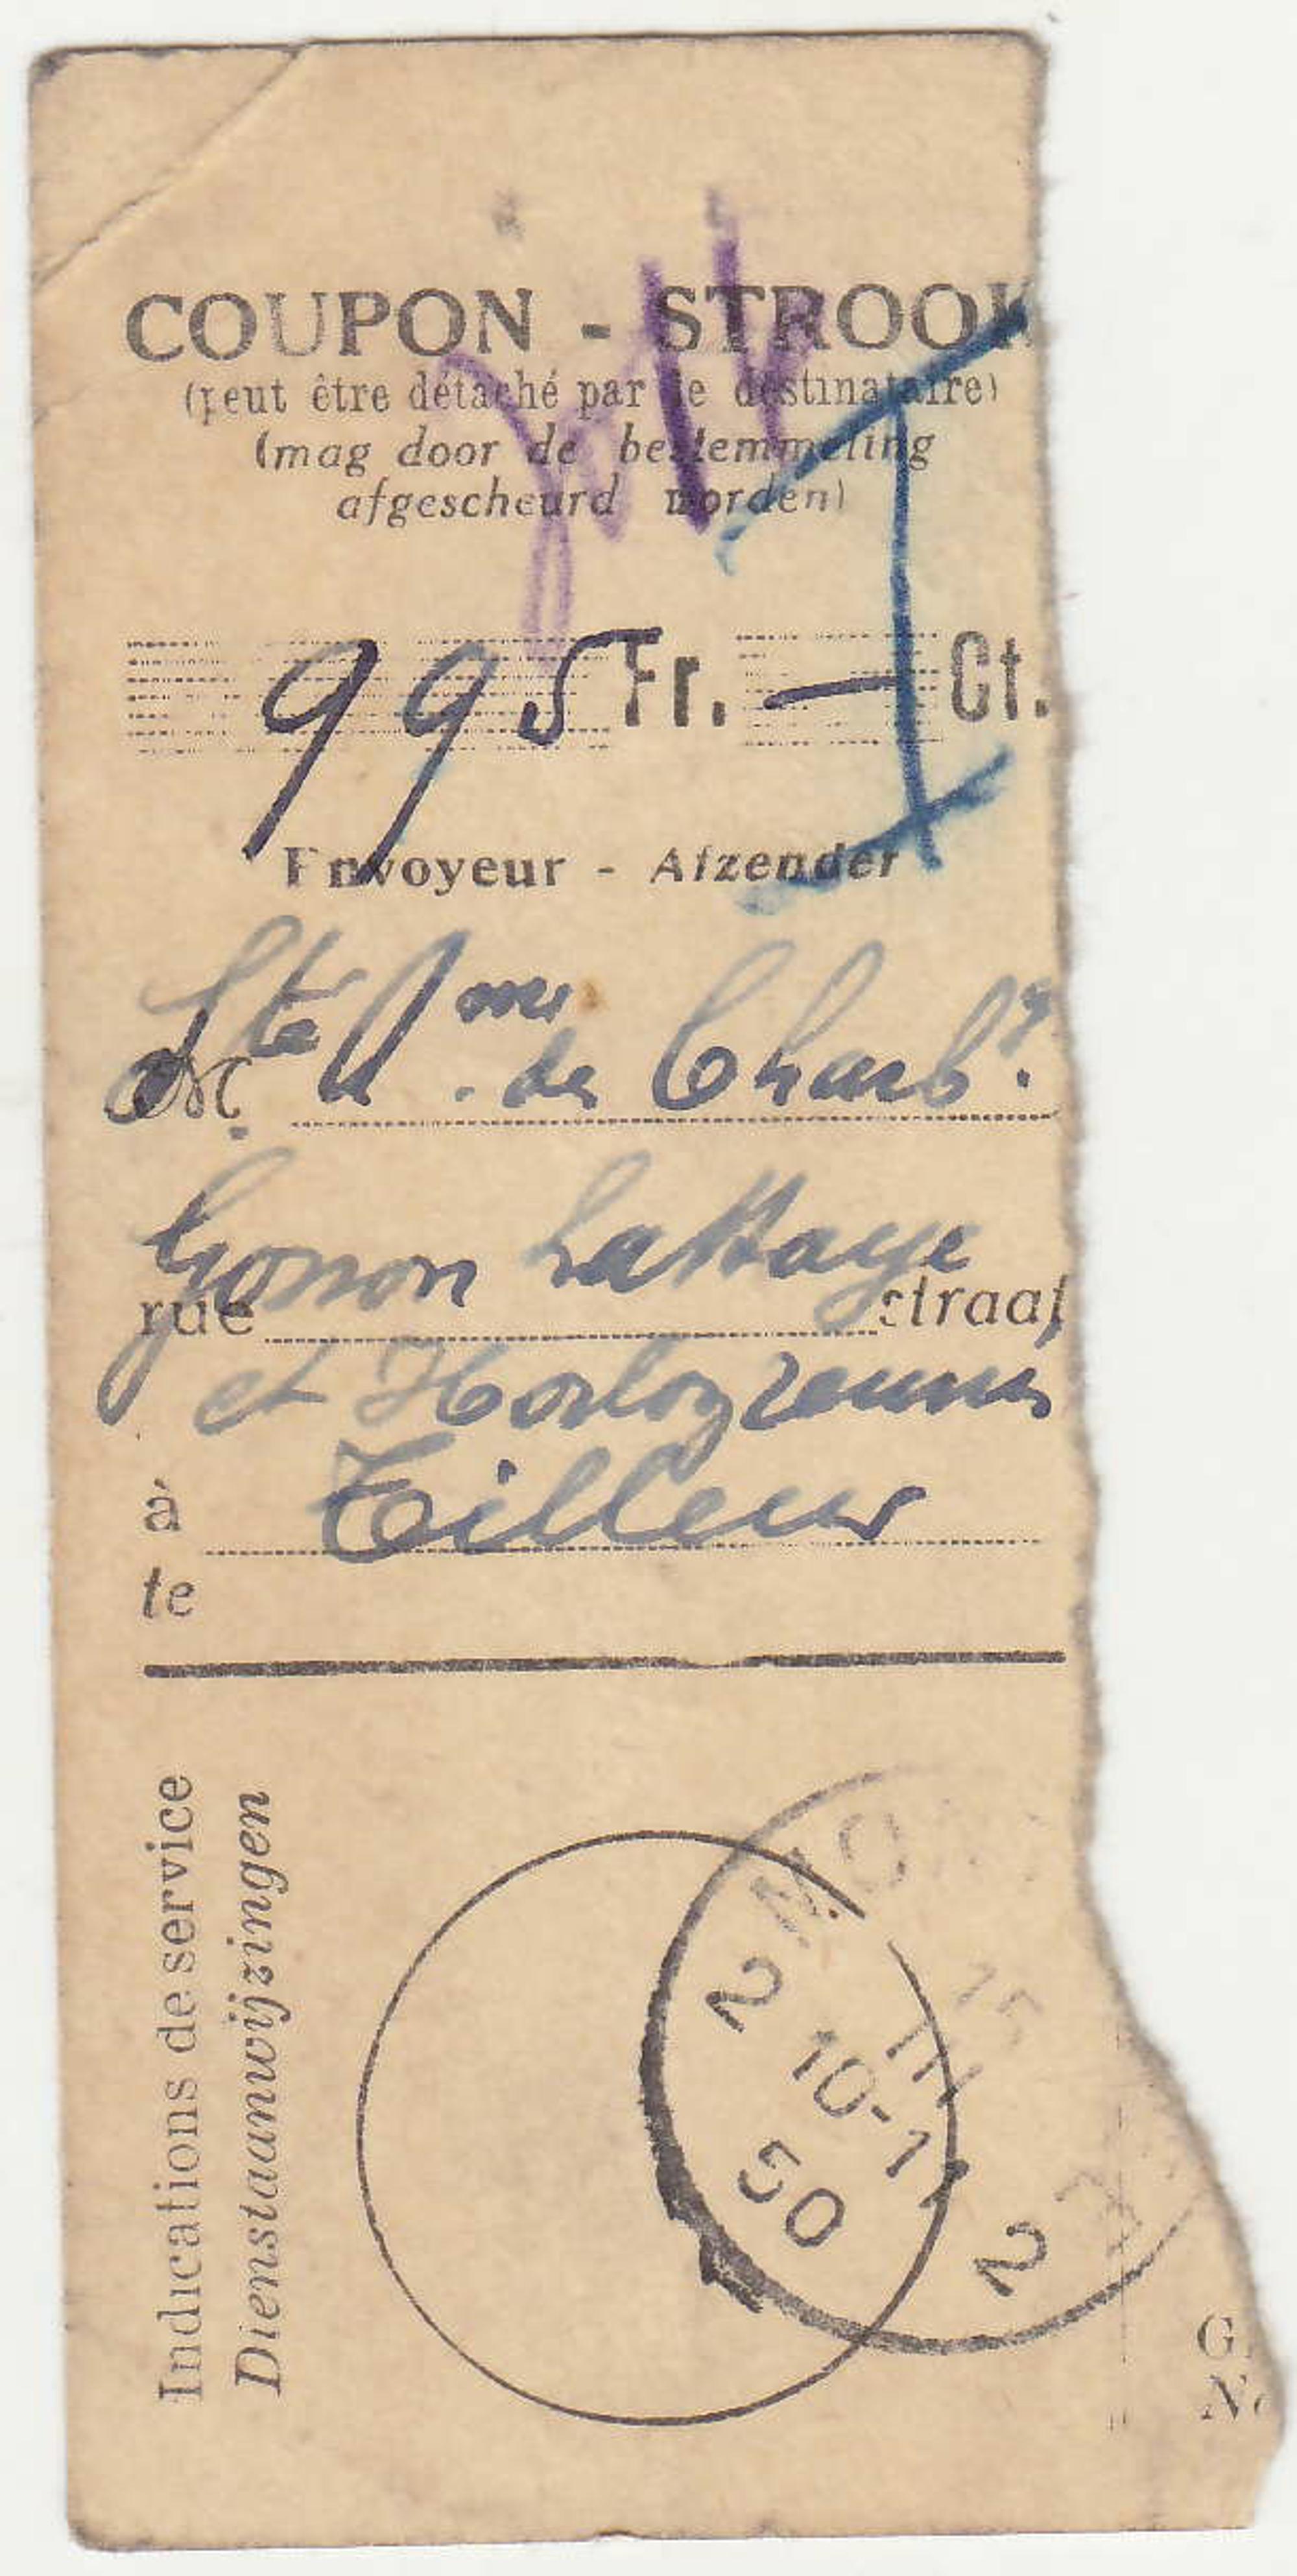 COUPON - STROOK
(peut être détaché par le destinataire)
(mag door de bestemmeling
afgescheurd worden)
995 Fr. — Ct.
Envoyeur - Afzender
Ste Ame. des Charb.
M.
Gosson LaHaye
rue straat
et Horloz reunis
à Tilleur
te
Indications de service
Dienstaanwijzingen
2 15
III
10-11
50
2 2
G
N